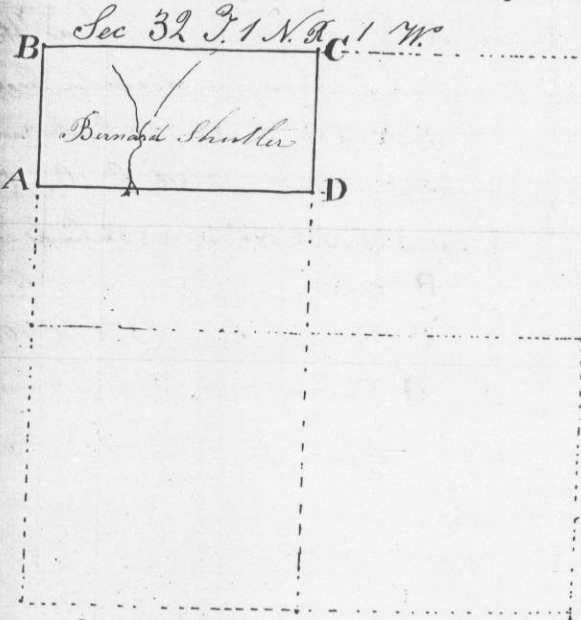 Sec 32 T. 1 N. R 1 W.
B C
Bernard Shutler
A D